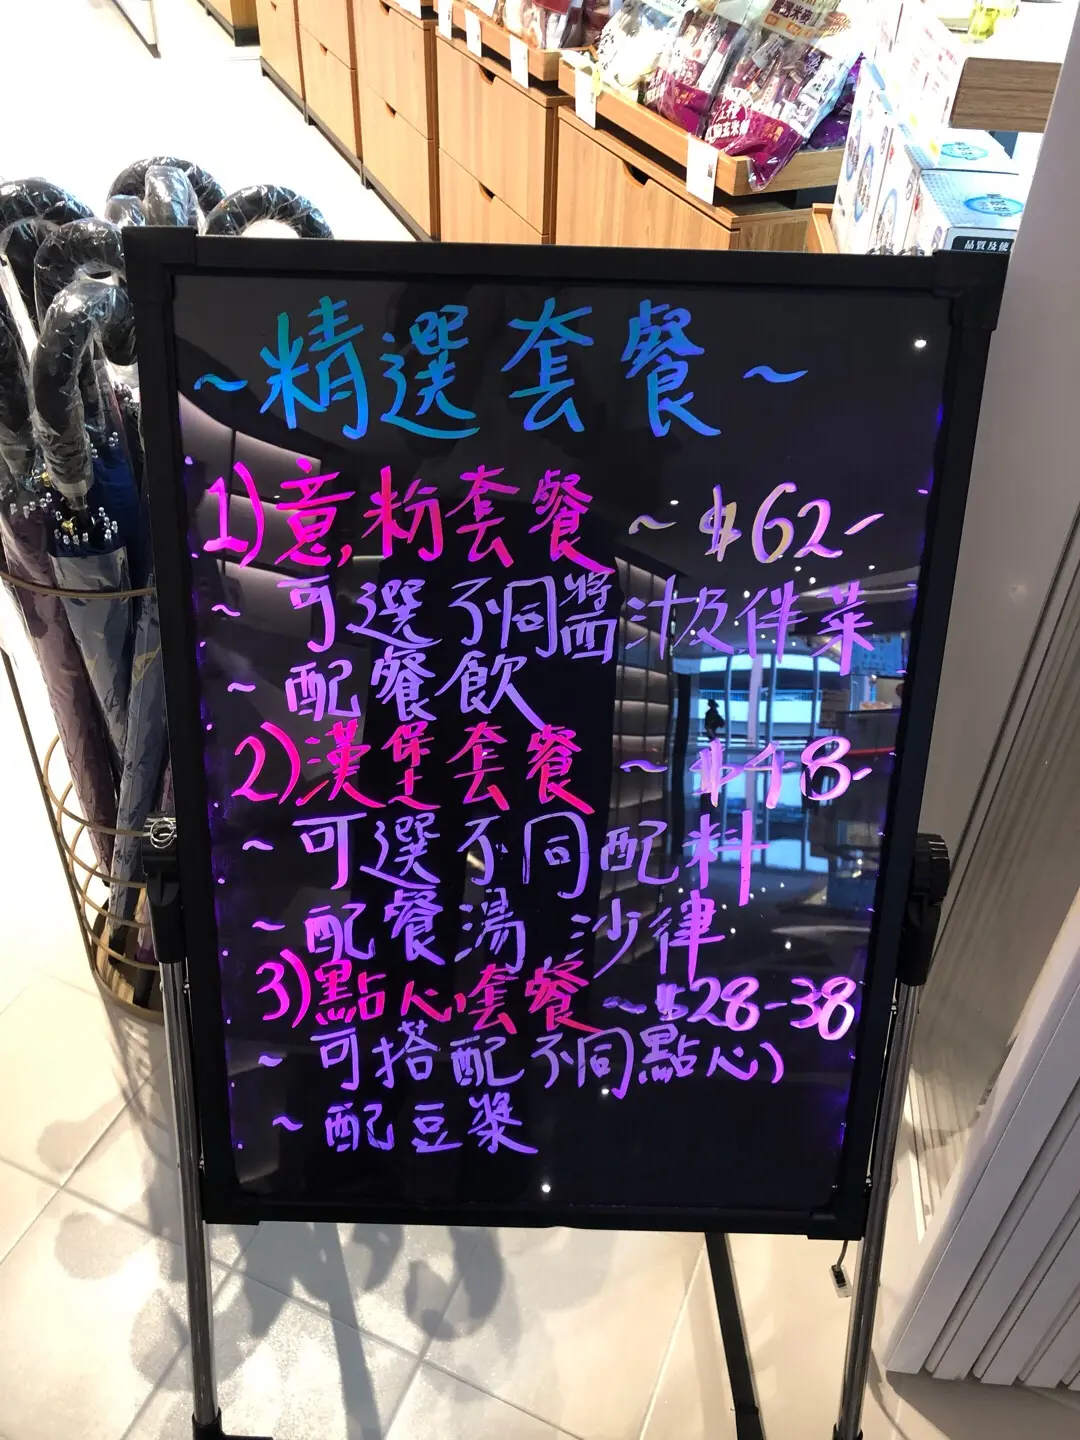 ~精選套餐~
1)意粉套餐~$62-
~可選不同醬汁及伴菜
~配餐飲
2)漢堡套餐~$48-
~可選不同配料
~配餐湯 沙律
3)點心套餐~$28-38
~可搭配不同點心)
~配豆漿
品質及使